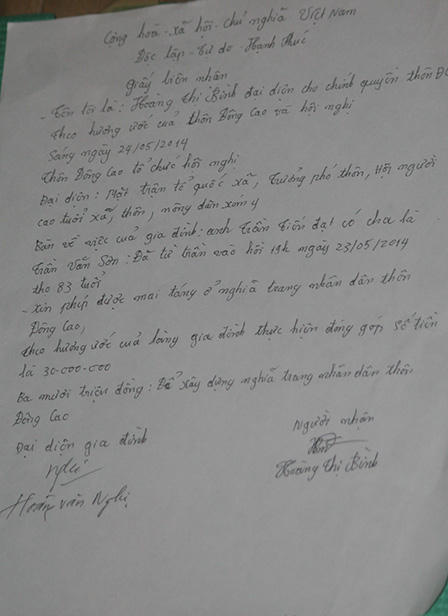 Cộng hoà - xã hội - chủ nghĩa Việt Nam
Độc lập - Tự do - Hạnh Phúc
Giấy biên nhân
- Tên tôi là: Hoàng Thị Bình đại diện cho chính quyền thôn Đ
Theo hương ước của thôn Đồng Cao và hội nghị
Sáng ngày 24/05/2014
Thôn Đồng Cao tổ chức hội nghị
Đại diện: Mặt trận tổ quốc xã, Trưởng phó thôn, Hội người
cao tuổi xã, thôn, nông dân xóm 4
Bàn về việc của gia đình: anh Trần Tiến đạt có cha là
Trần Văn Sơn: Đã từ trần vào hồi 19h ngày 23/05/2014
thọ 83 tuổi
- Xin phép được mai táng ở nghĩa trang nhân dân thôn
Đồng Cao,
Theo hương ước của làng gia đình thực hiện đóng góp số tiền
là 30-000-000
Ba mươi triệu đồng: Để xây dựng nghĩa trang nhân dân thôn
Đồng Cao
Đại diện gia đình
Người nhận
Nghị
Hoàng Thị Bình
Hoàng Văn Nghị